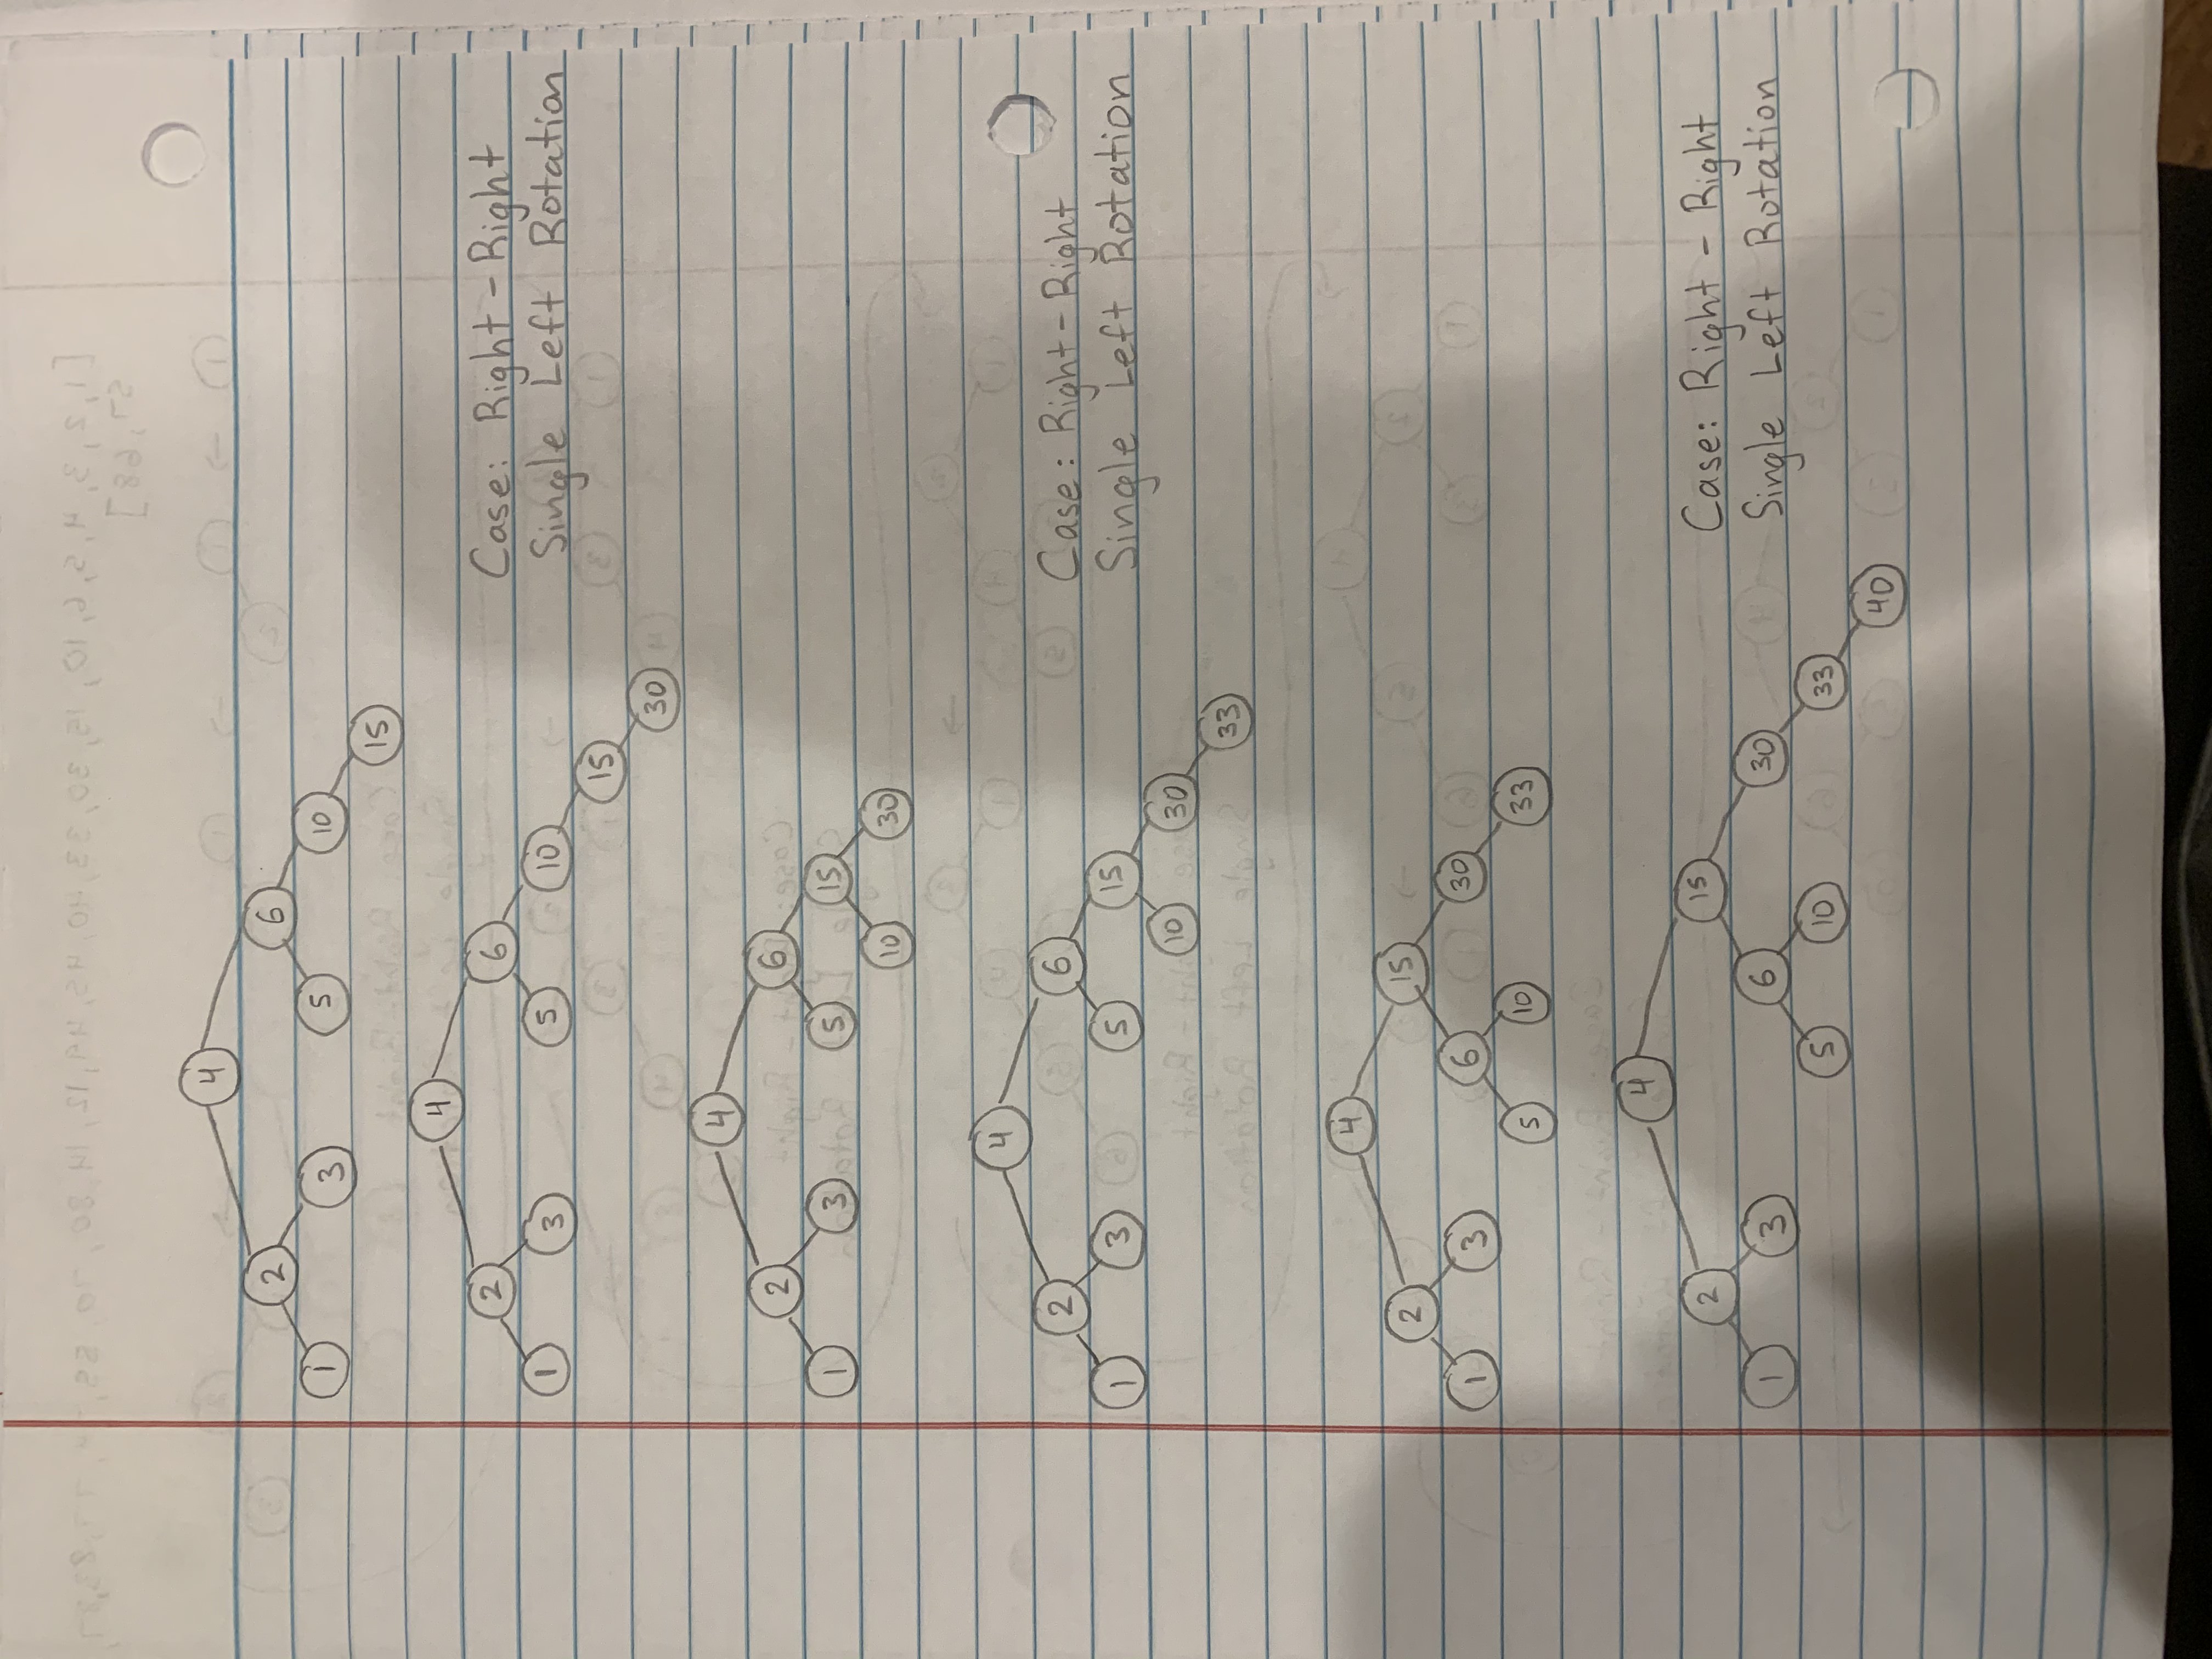 4
2 6
1 3 5 10
15
4
2 6
1 3 5 10
15
30
Case: Right - Right
Single Left Rotation
4
2 6
1 3 5 15
10 30
4
2 6
1 3 5 15
10 30
33
Case: Right - Right
Single Left Rotation
4
2 15
1 3 6 30
5 10 33
4
2 15
1 3 6 30
5 10 33
40
Case: Right - Right
Single Left Rotation